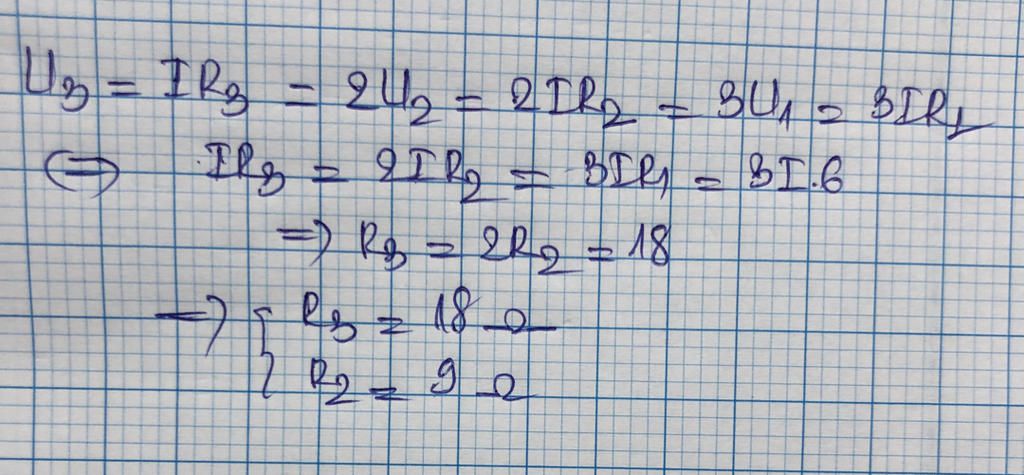 U₃ = IR₃ = 2U₂ = 2IR₂ = 3U₁ = 3IR₁
⟺ IR₃ = 2IR₂ = 3IR₁ = 3I.6
⟹ R₃ = 2R₂ = 18
⟹ { R₃ = 18 Ω
R₂ = 9 Ω